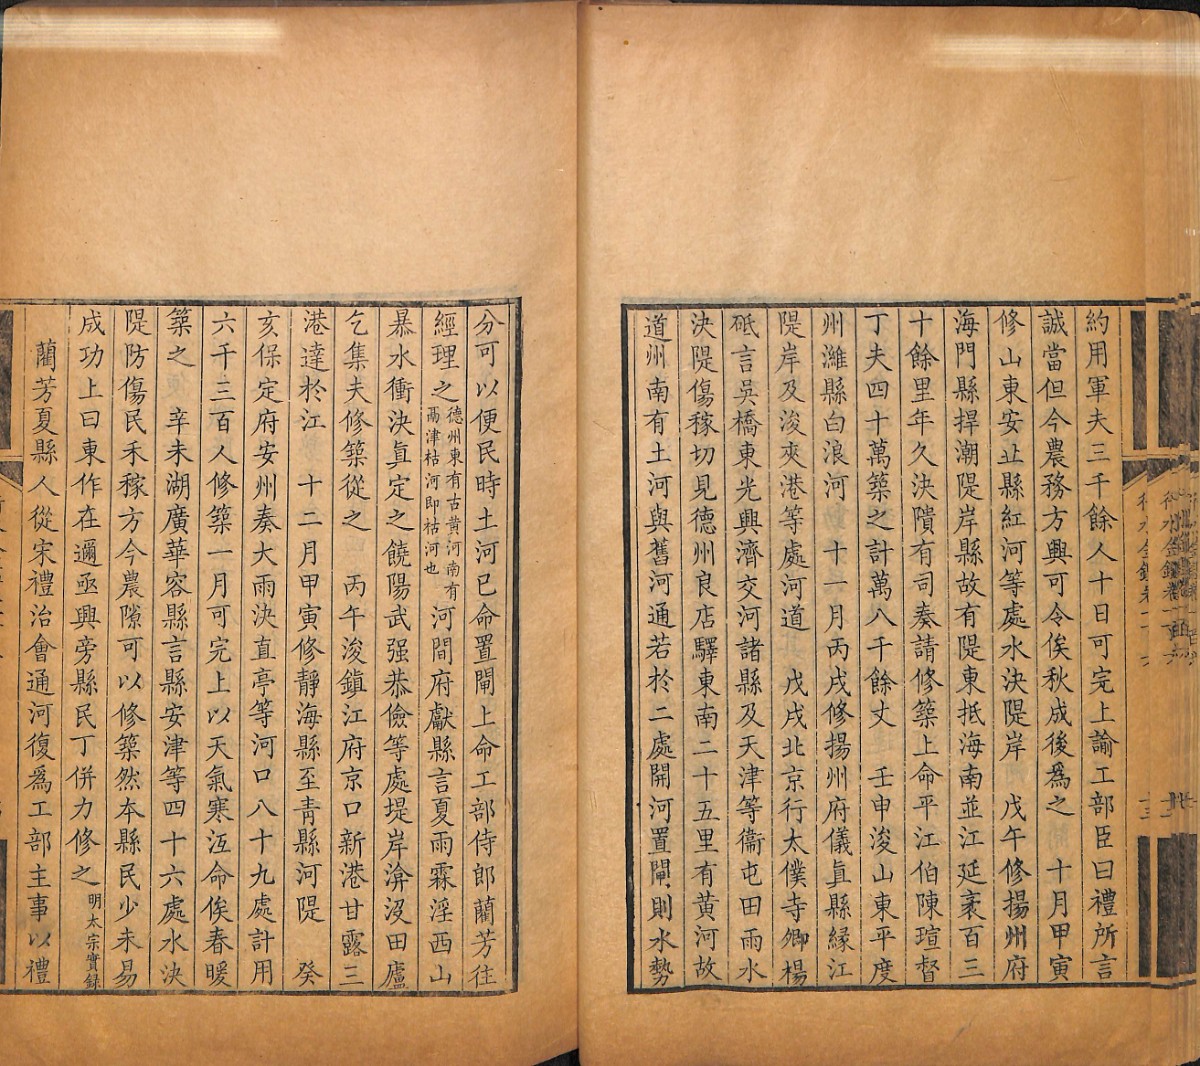 約用軍夫三千餘人十日可完上諭工部臣曰禮所言
誠當但今農務方興可令俟秋成後爲之　十月甲寅
修山東安丘縣紅河等處水決隄岸　戊午修揚州府
海門縣捍潮隄岸縣故有隄東抵海南並江延袤百三
十餘里年久決隤有司奏請修築上命平江伯陳瑄督
丁夫四十萬築之計萬八千餘丈　壬申浚山東平度
州濰縣白浪河　十一月丙戌修揚州府儀眞縣緣江
隄岸及浚夾港等處河道　戊戌北京行太僕寺卿楊
砥言吳橋東光興濟交河諸縣及天津等衞屯田雨水
決隄傷稼切見德州良店驛東南二十五里有黄河故
道州南有土河與舊河通若於二處開河置閘則水勢
分可以便民時土河已命置閘上命工部侍郎藺芳往
經理之德州東有古黄河南有鬲津枯河即枯河也河間府獻縣言夏雨霖淫西山
暴水衝決眞定之饒陽武强恭儉等處堤岸渰沒田廬
乞集夫修築從之　丙午浚鎭江府京口新港甘露三
港達於江　十二月甲寅修靜海縣至青縣河隄　癸
亥保定府安州奏大雨決直亭等河口八十九處計用
六千三百人修築一月可完上以天氣寒沍命俟春暖
築之　辛未湖廣華容縣言縣安津等四十六處水決
隄防傷民禾稼方今農隙可以修築然本縣民少未易
成功上曰東作在邇亟興旁縣民丁併力修之明太宗實録
藺芳夏縣人從宋禮治會通河復爲工部主事以禮